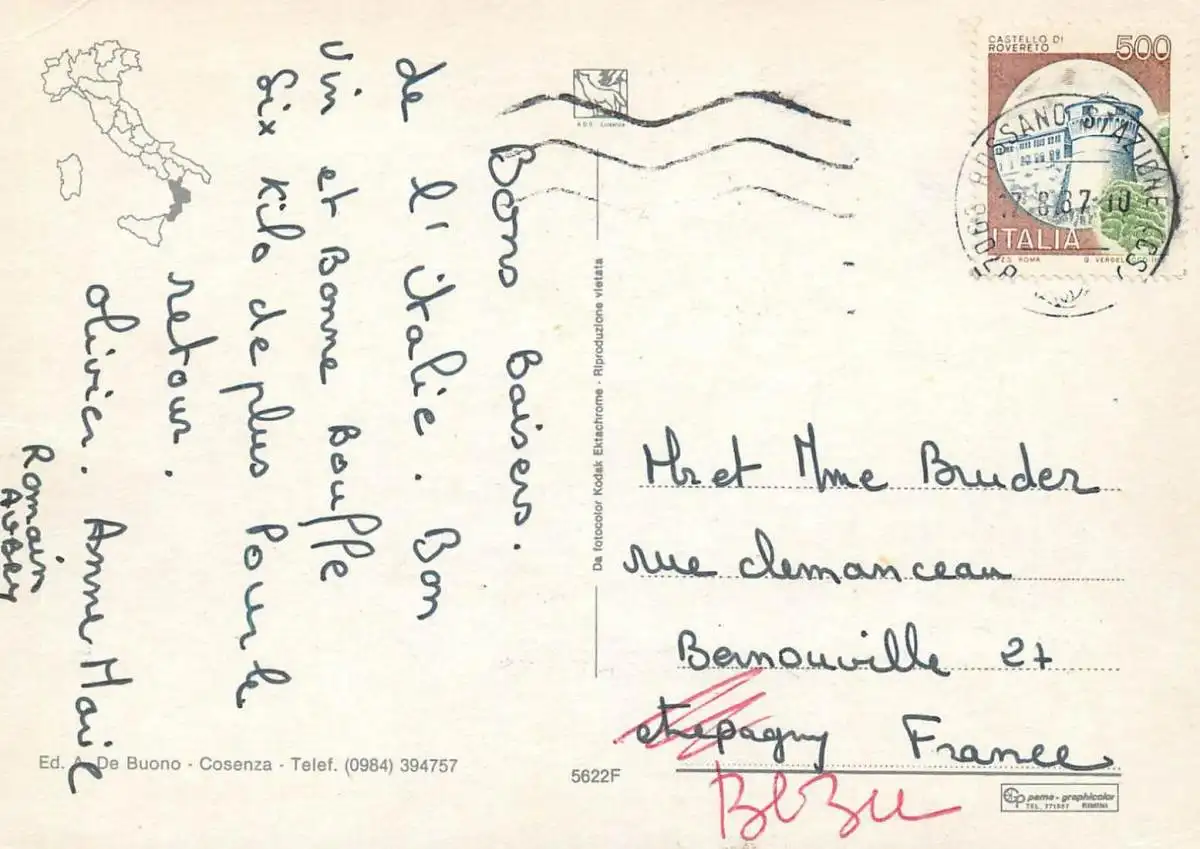 Bons Baisers.
de l'italie. Bon
vin et Bonne Bouffe
Six kilo de plus Pour le
retour.
olivier. Anne Marie
Romain
CASTELLO DI
ROVERETO
500
ITALIA
ROSSANO STAZIONE (CS)
8.87-10
Da fotocolor Kodak Ektachrome - Riproduzione vietata
Mr et Mme Bruder
rue clemanceau
Bernouville 27
etrepagny France
Ed. A. De Buono - Cosenza - Telef. (0984) 394757
5622F
pama-graphicolor